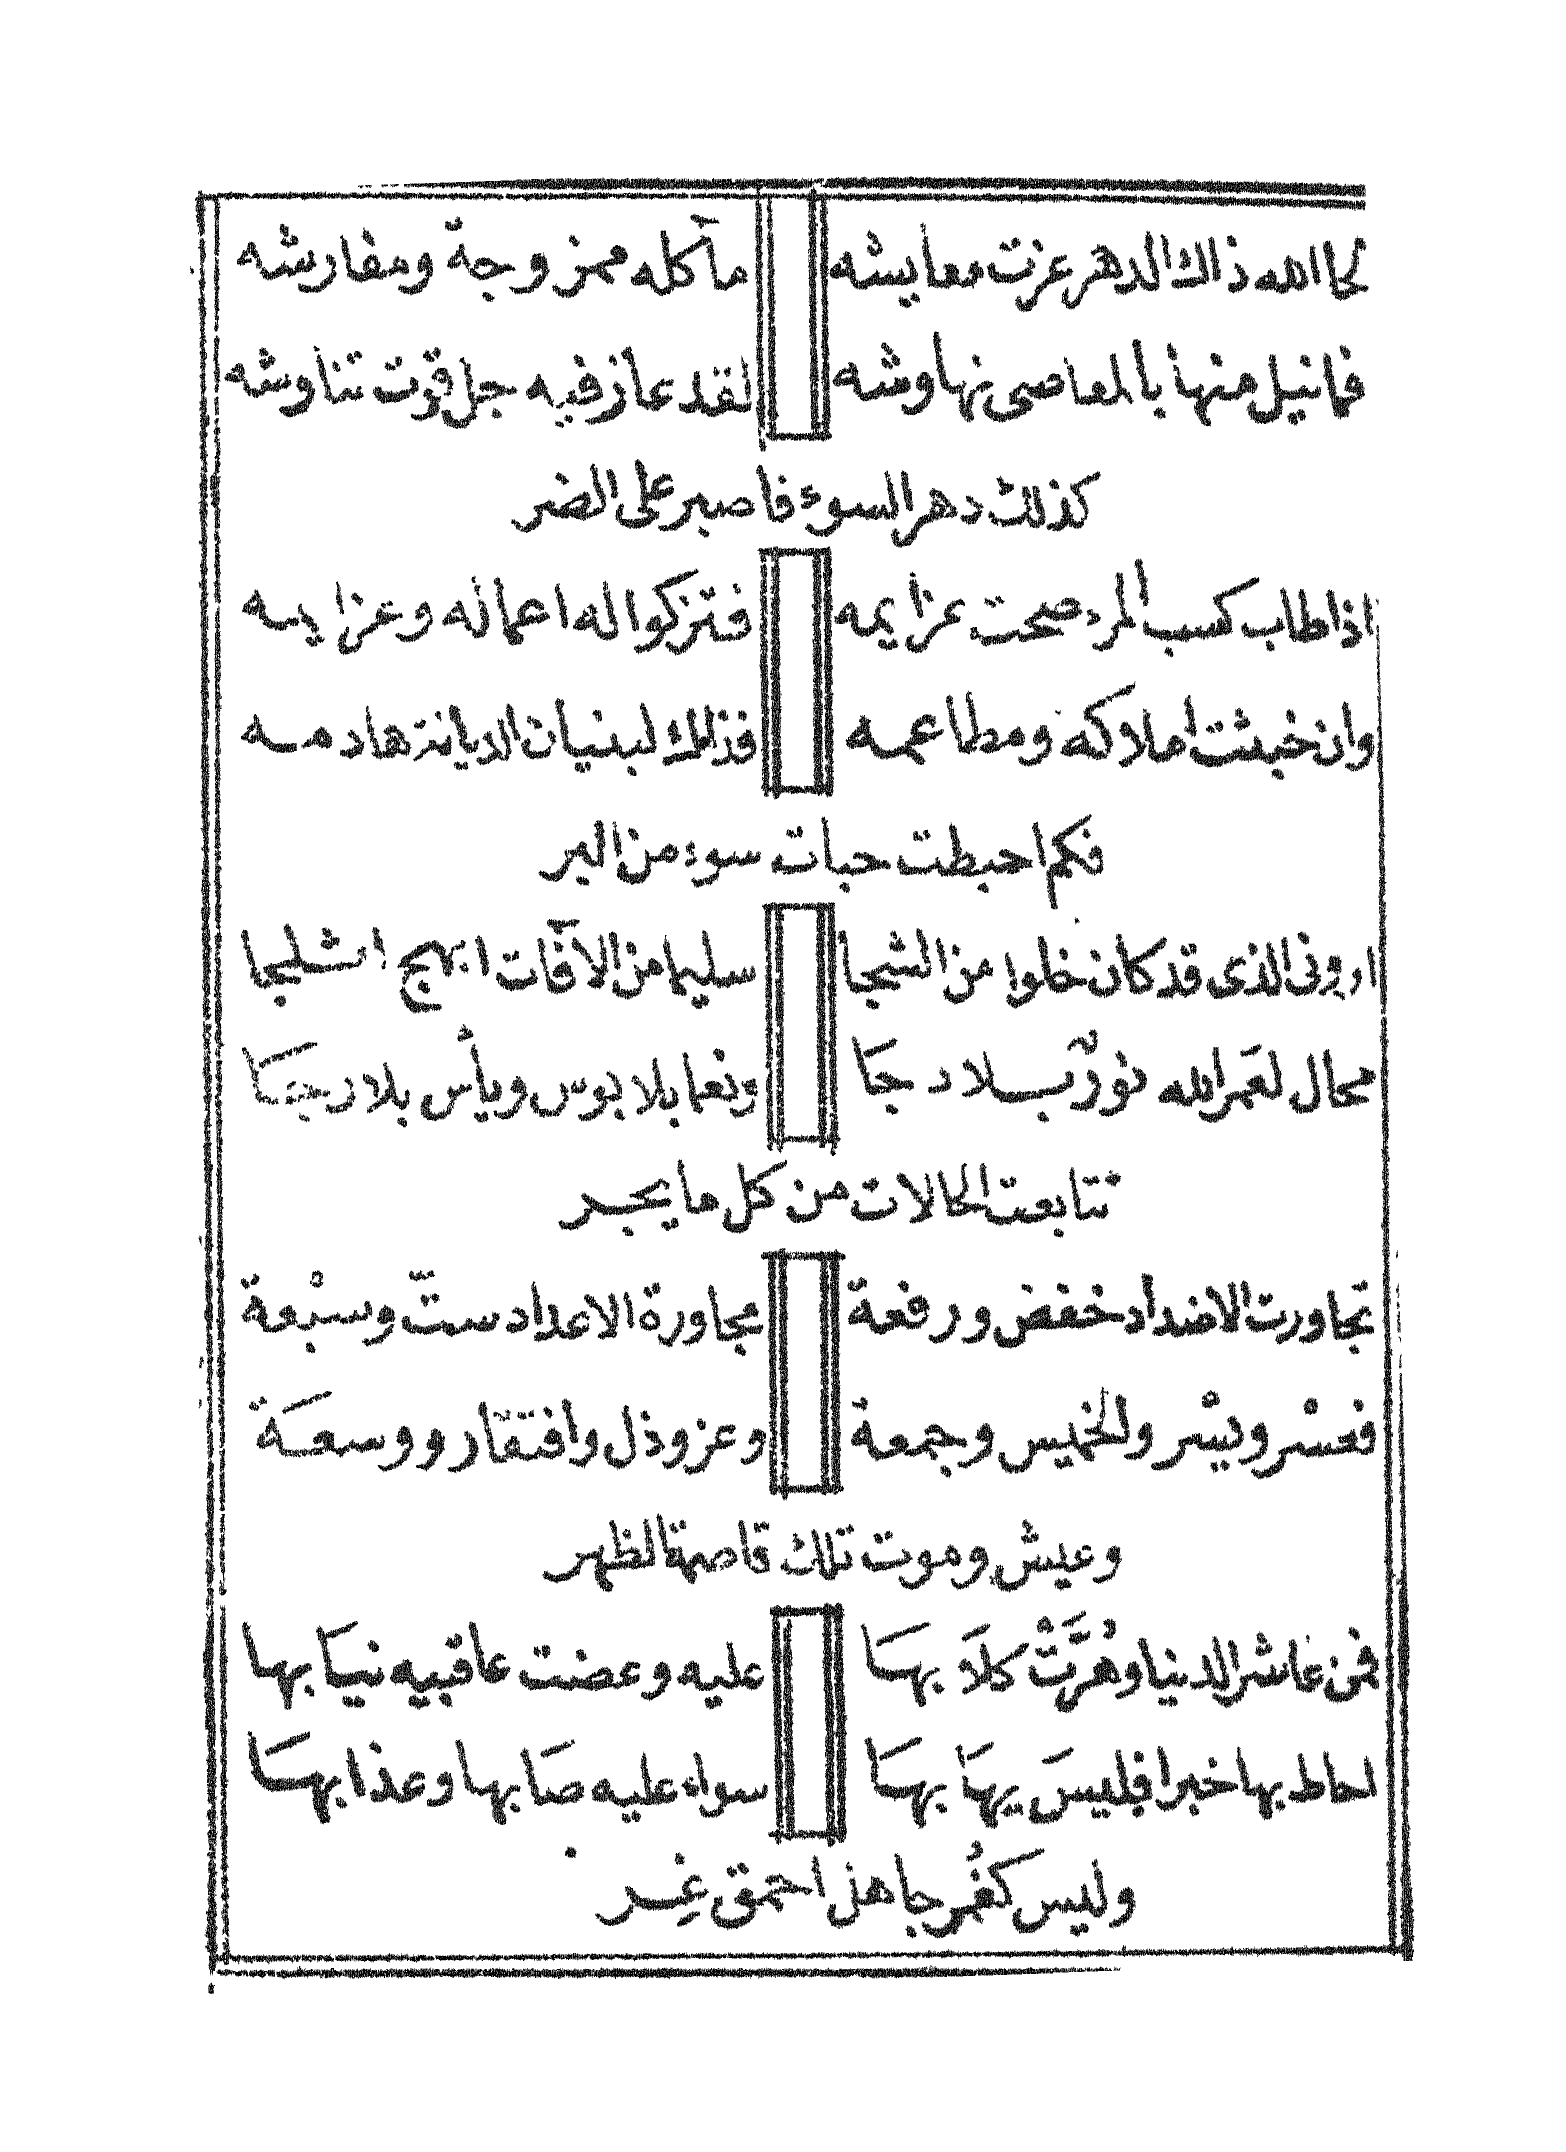 لحا الله ذاك الدهر عزت معايشه مآكله ممزوجة ومفارشه
فمانيل منها بالمعاصى نهاوشه لقد عازفيه جل قوت تناوشه
كذلك دهر السوء فاصبر على الضر
اذا طاب كسب المرء صحت عزايمه فتزكوا له اعماله وعزايمه
وان خبثت املاكه ومطاعمه فذلك لبنيان الديانة هادمه
فكم احبطت حبات سوء من البر
ارونى الذى قد كان خلوا من الشجا سليما من الآفات ابهج اثلجا
محال لعمر الله نور بلا دجا ونعما بلا بوس ويأس بلا رجا
تتابعت الحالات من كل ما يجر
تجاورت الاضداد خفض ورفعة مجاورة الاعداد ستّ وسبْعة
فعسْر ويسْر والخميس وجمعة وعز وذل وافتقار ووسعة
وعيش وموت تلك قاصمة الظهر
فمن عاشر الدنيا وهُرَّتْ كلابها عليه وعضت عاقبيه نيابها
احاط بها خبرا فليس يهابها سواء عليه صابها وعذابها
وليس كغُمر جاهل احمق غِر